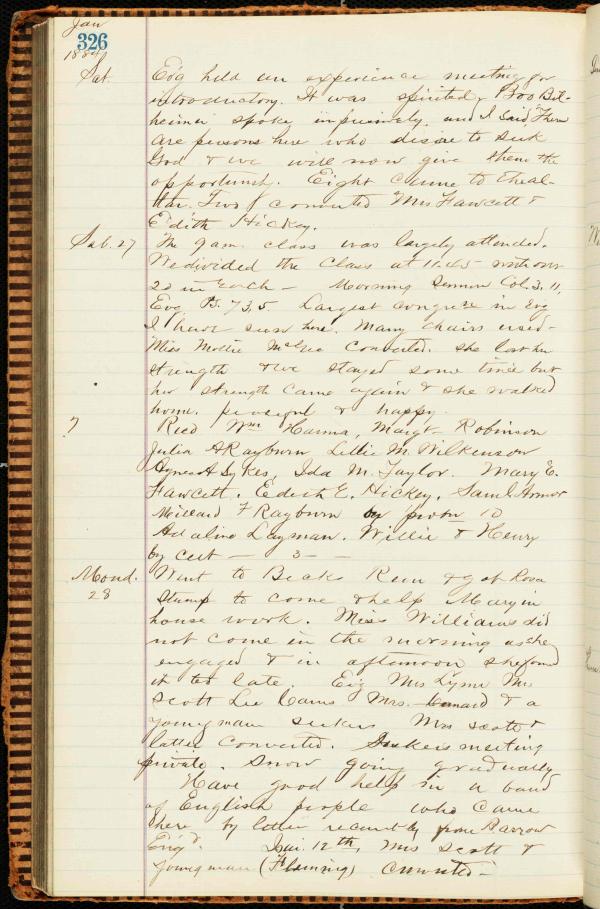 Jan
326
1884
Sat. Evg held an experience meeting for
introductory. It was spirited, Bro Bil-
heimer spoke impressively, and I said There
are persons here who desire to seek
God & we will now give them the
opportunity. Eight came to the al-
tar. Two converted Mrs Fawcett &
Edith Hickey.
Sab. 27 The 9 am. class was largely attended.
We divided the class at 10.45 with over
20 in each - Morning Sermon Col. 3. 11,
Evg Ps. 73,5. Largest congre in Evg
I have seen here. Many chairs used -
Miss Mollie McGee converted. She lost her
strength & we stayed some time but
her strength came again & she walked
home. peaceful & happy.
7 Recd Wm Hanna, Margt Robinson
Julia A Rayburn Lillie M. Wilkenson
Agnes A Sykes, Ida M. Taylor. Mary E.
Fawcett. Edith E. Hickey, Saml Armor
Millard F Rayburn by probn 10
Adaline Layman. Willie & Henry
by cert - 3 -
Mond. 28 Went to Beaks Run & got Rosa
Stump to come & help Mary in
house work. Miss Williams did
not come in the morning as she
engaged & in afternoon she found
it too late. Evg Mrs Lynn Mrs
Scott Lee Mrs. & a
young man seekers Mrs Scott &
latter converted. Seekers meeting
private. Snow going gradually
Have good help in a band
of English people who came
here by letter recently from Barrow
Engd. Jan. 12th, Mrs Scott &
young man (Flemming) converted -